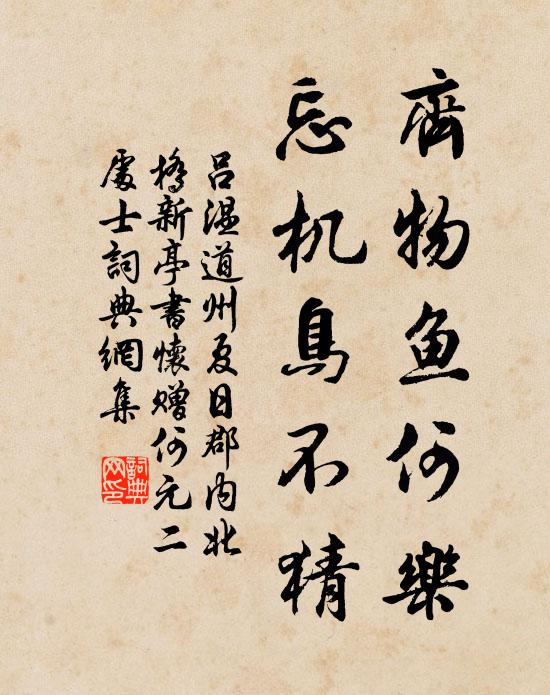 齊物鱼何樂
忘机鳥不猜
吕温道州夏日郡内北
橋新亭書懷贈何元二
處士詞典網集
詞典网印